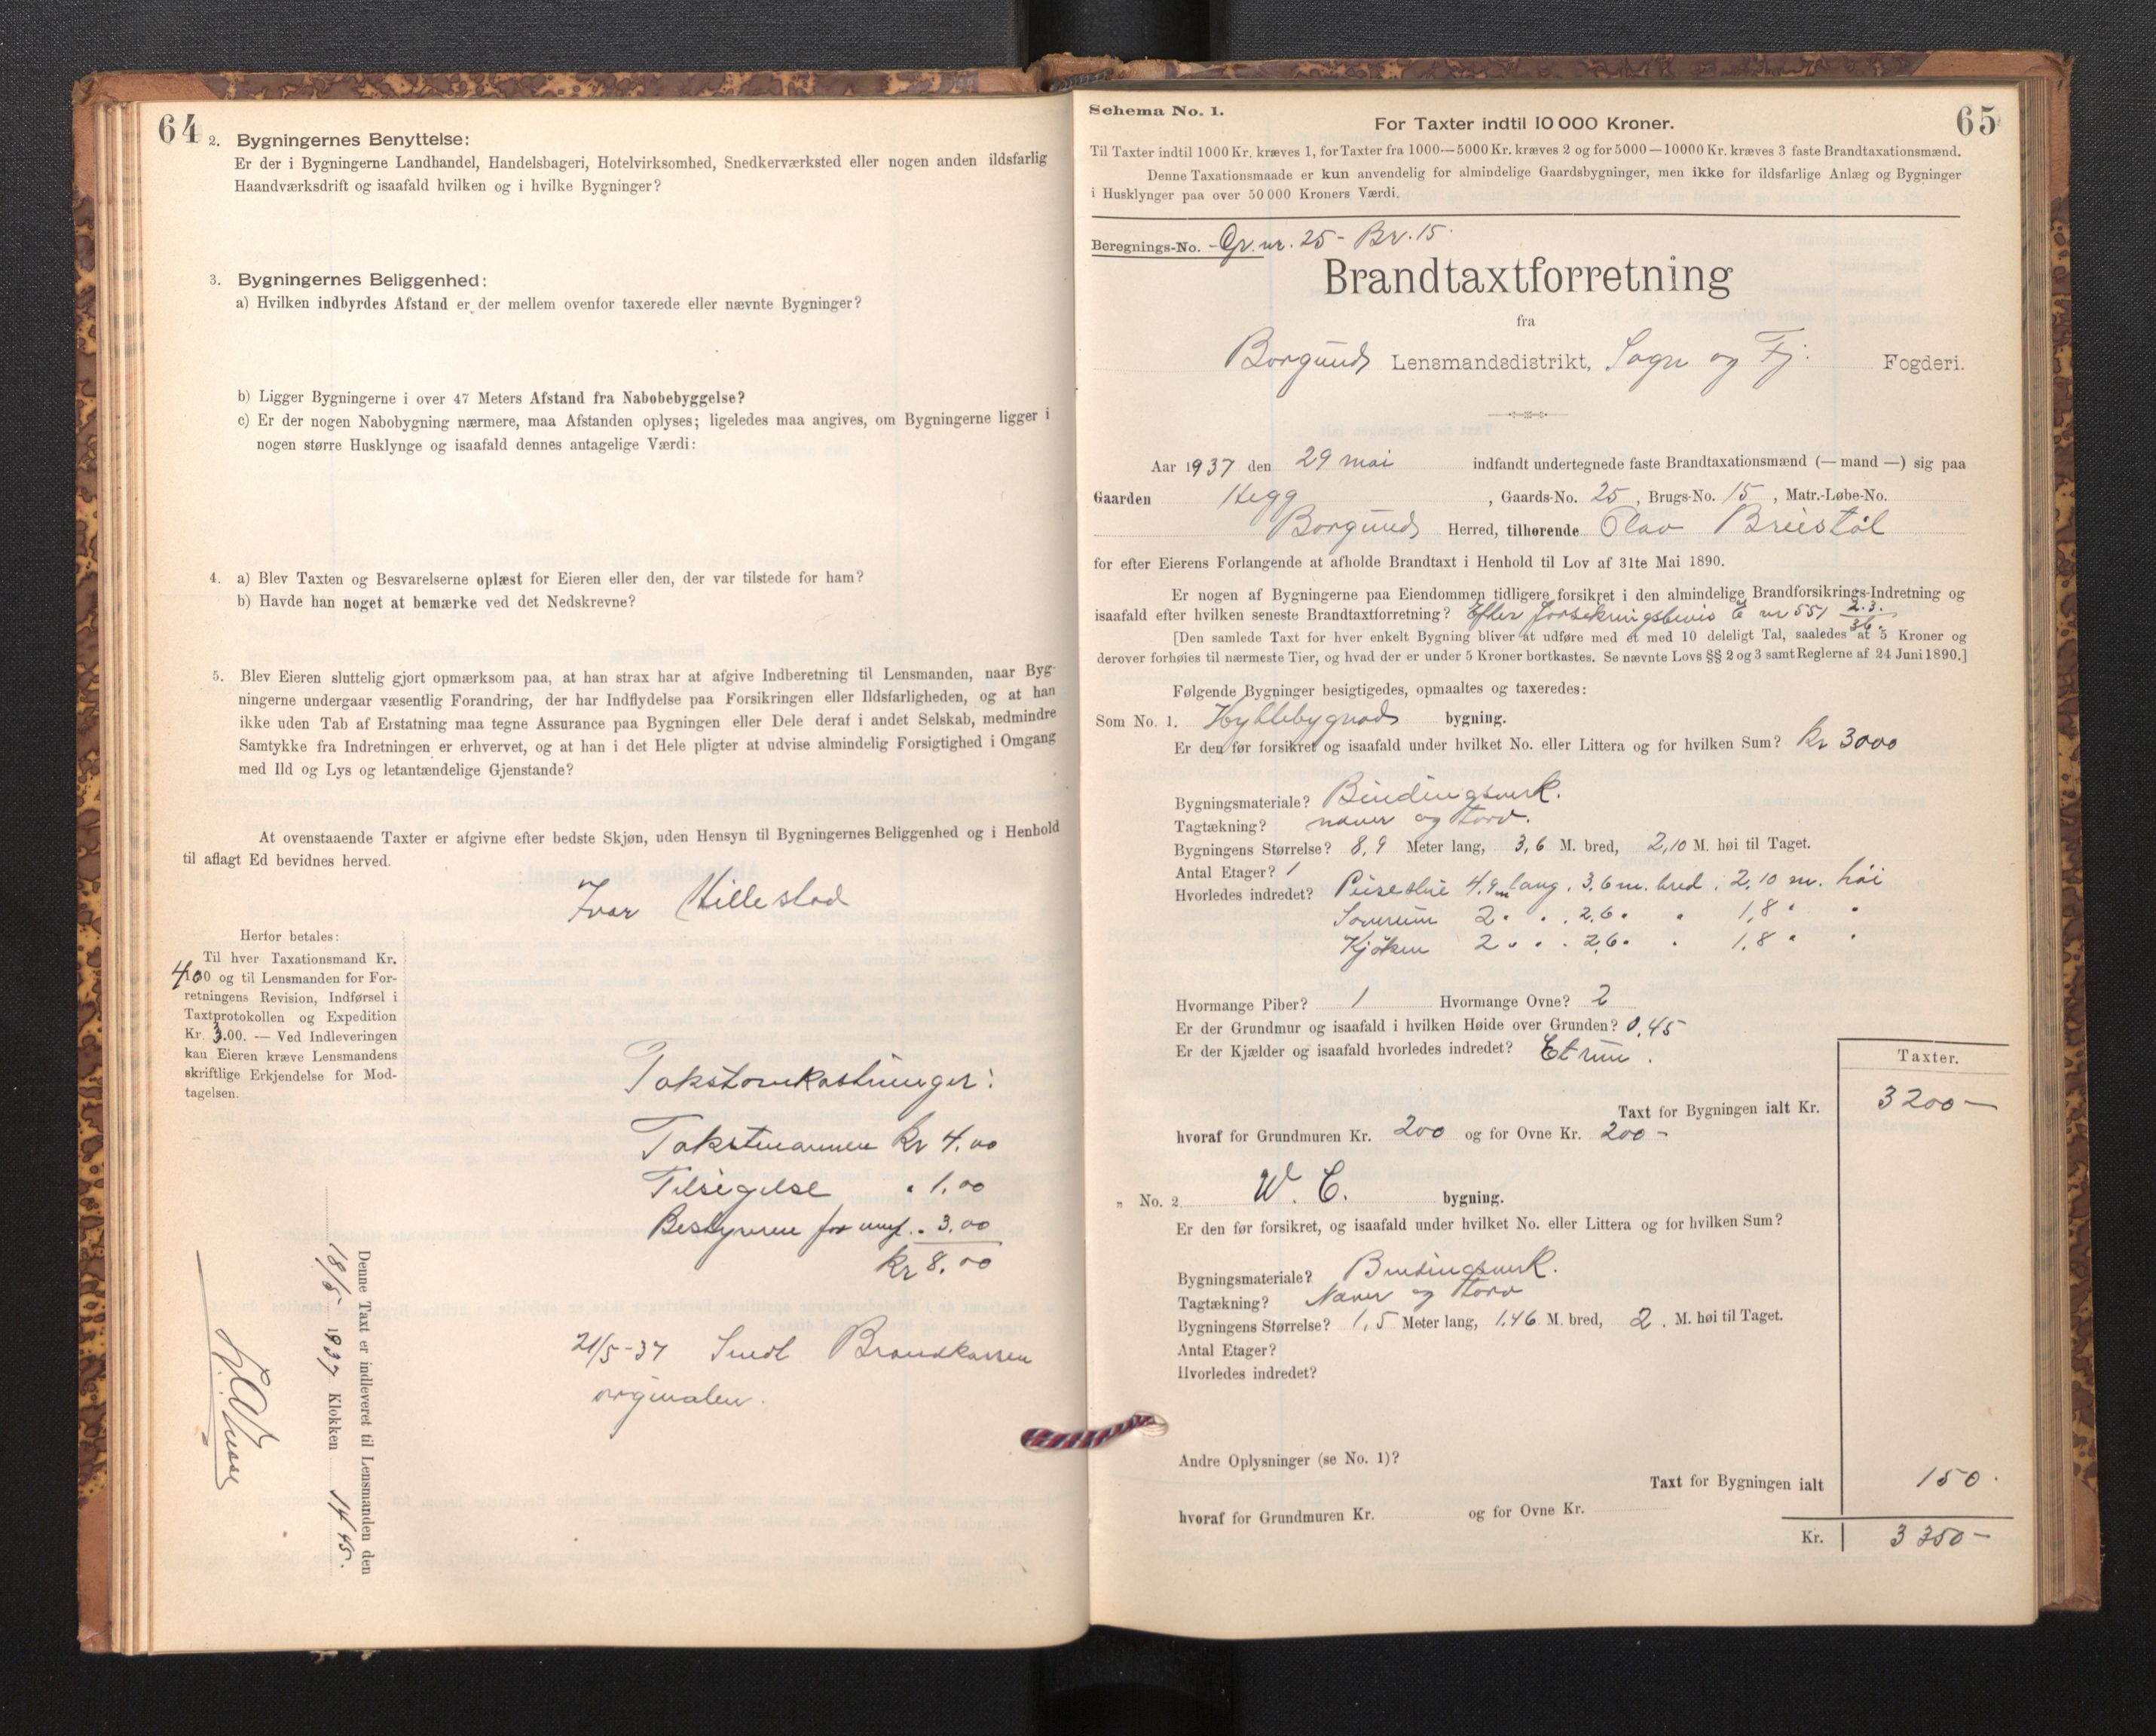 64
2. Bygningernes Benyttelse:
Er der i Bygningerne Landhandel, Handelsbageri, Hotelvirksomhed, Snedkerværksted eller nogen anden ildsfarlig
Haandværksdrift og isaafald hvilken og i hvilke Bygninger?
3. Bygningernes Beliggenhed:
a) Hvilken indbyrdes Afstand er der mellem ovenfor taxerede eller nævnte Bygninger?
b) Ligger Bygningerne i over 47 Meters Afstand fra Nabobebyggelse?
c) Er der nogen Nabobygning nærmere, maa Afstanden oplyses; ligeledes maa angives, om Bygningerne ligger i
nogen større Husklynge og isaafald dennes antagelige Værdi:
4. a) Blev Taxten og Besvarelserne oplæst for Eieren eller den, der var tilstede for ham?
b) Havde han noget at bemærke ved det Nedskrevne?
5. Blev Eieren sluttelig gjort opmærksom paa, at han strax har at afgive Indberetning til Lensmanden, naar Byg-
ningerne undergaar væsentlig Forandring, der har Indflydelse paa Forsikringen eller Ildsfarligheden, og at han
ikke uden Tab af Erstatning maa tegne Assurance paa Bygningen eller Dele deraf i andet Selskab, medmindre
Samtykke fra Indretningen er erhvervet, og at han i det Hele pligter at udvise almindelig Forsigtighed i Omgang
med Ild og Lys og letantændelige Gjenstande?
At ovenstaaende Taxter er afgivne efter bedste Skjøn, uden Hensyn til Bygningernes Beliggenhed og i Henhold
til aflagt Ed bevidnes herved.
Ivar Hillestad
Herfor betales:
Til hver Taxationsmand Kr.
4.00 og til Lensmanden for For-
retningens Revision, Indførsel i
Taxtprotokollen og Expedition
Kr. 3.00. — Ved Indleveringen
kan Eieren kræve Lensmandens
skriftlige Erkjendelse for Mod-
tagelsen.
Takstomkostninger:
Takstmannen kr 4.00
Tilsigelse " 1.00
Bestyreren for
3.00
kr 8.00
21/5-37 Sendt Brandkassen
orginalen.
Denne Taxt er indleveret til Lensmanden den
18/5 1937 Klokken 14 45.
Schema No. 1.
65
For Taxter indtil 10 000 Kroner.
Til Taxter indtil 1000 Kr. kræves 1, for Taxter fra 1000—5000 Kr. kræves 2 og for 5000—10000 Kr. kræves 3 faste Brandtaxationsmænd.
Denne Taxationsmaade er kun anvendelig for almindelige Gaardsbygninger, men ikke for ildsfarlige Anlæg og Bygninger
i Husklynger paa over 50 000 Kroners Værdi.
Beregnings-No. - Gr. nr. 25 - Br. 15.
Brandtaxtforretning
fra
Borgund Lensmandsdistrikt, Sogn og Fj. Fogderi.
Aar 1937 den 29 mai indfandt undertegnede faste Brandtaxationsmænd (— mand —) sig paa
Gaarden Hegg, Gaards-No. 25, Brugs-No. 15, Matr.-Løbe-No.
Borgund Herred, tilhørende Olav Breistøl
for efter Eierens Forlangende at afholde Brandtaxt i Henhold til Lov af 31te Mai 1890.
Er nogen af Bygningerne paa Eiendommen tidligere forsikret i den almindelige Brandforsikrings-Indretning og
isaafald efter hvilken seneste Brandtaxtforretning? Efter forsikringsbevis E nr 551 2.3.
36.
[Den samlede Taxt for hver enkelt Bygning bliver at udføre med et med 10 deleligt Tal, saaledes at 5 Kroner og
derover forhøies til nærmeste Tier, og hvad der er under 5 Kroner bortkastes. Se nævnte Lovs §§ 2 og 3 samt Reglerne af 24 Juni 1890.]
Følgende Bygninger besigtigedes, opmaaltes og taxeredes:
Som No. 1. Hyttebygnads bygning.
Er den før forsikret og isaafald under hvilket No. eller Littera og for hvilken Sum? kr 3000
Bygningsmateriale? Bindingsverk.
Tagtækning? never og torv.
Bygningens Størrelse? 8,9 Meter lang, 3,6 M. bred, 2,10 M. høi til Taget.
Antal Etager? 1
Hvorledes indredet? Peisestue 4.9 m lang, 3.6 m. bred, 2,10 m. høi
Soverum 2 " " 2.6 " " 1,8 " "
Kjøken 2 " " 2.6 " " 1,8 " "
Hvormange Piber? 1 Hvormange Ovne? 2
Er der Grundmur og isaafald i hvilken Høide over Grunden? 0.45
Er der Kjælder og isaafald hvorledes indredet? Et rum.
Taxter.
Taxt for Bygningen ialt Kr. 3200 —
hvoraf for Grundmuren Kr. 200 og for Ovne Kr. 200 -
" No. 2 W. C. bygning.
Er den før forsikret, og isaafald under hvilket No. eller Littera og for hvilken Sum?
Bygningsmateriale? Bindingsverk.
Tagtækning? Never og torv
Bygningens Størrelse? 1,5 Meter lang, 1.46 M. bred, 2. M. høi til Taget.
Antal Etager?
Hvorledes indredet?
Andre Oplysninger (se No. 1)?
Taxt for Bygningen ialt 150.
hvoraf for Grundmuren Kr. og for Ovne Kr.
Kr. 3350 —